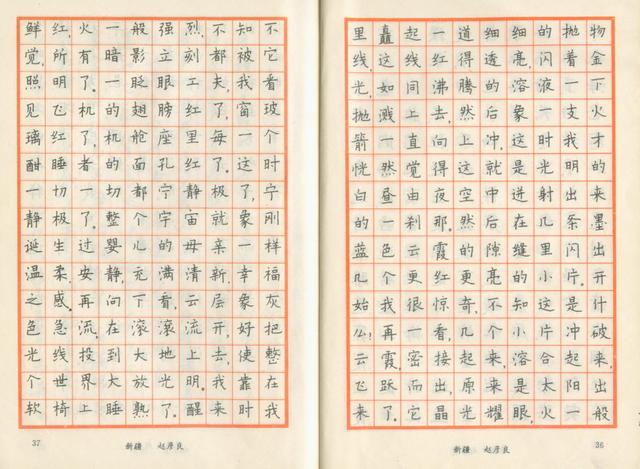 里矗起一道细细的抛物
线,这线红得透亮,闪着金
光,如同沸腾的溶液一下
抛溅上去,然后象一支火
箭一直向上冲,这时我才
恍然觉得这就是光明的
白昼由夜空中迸射出来
的一刹那。然后在几条墨
蓝色云霞的隙缝里闪出
几个更红更亮的小片。开
始我很惊奇,不知这是什
么?再一看,几个小片冲破
云霞,密接起来,溶合起来,
飞跃而出,原来是太阳出
来了。它晶光耀眼,火一般
新疆 赵彦良 36
鲜红,火一般强烈,不知不
觉,所有暗影立刻都被它
照明了。一眨眼工夫,我看
见飞机的翅膀红了,窗玻
璃红了,机舱座里每一个
酣睡者的面孔红了。这时
一切一切都宁静极了,宁
静极了。整个宇宙就象刚
诞生过婴儿的母亲一样
温柔、安静,充满清新、幸福
之感。再向下看,云层象灰
色急流,在滚滚流开,好把
光线投到大地上去,使整
个世界大放光明。我靠在
软椅上睡熟了。醒来时我
37 新疆 赵彦良